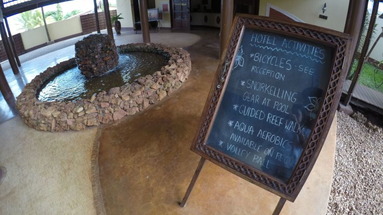 HOTEL ACTIVITIES
* BICYCLES SEE
RECEPTION
* SNORKELLING
GEAR AT POOL
* GUIDED REEF WALK
* AQUA AEROBIC
AVAILABLE AT
* VOLLEY BALL